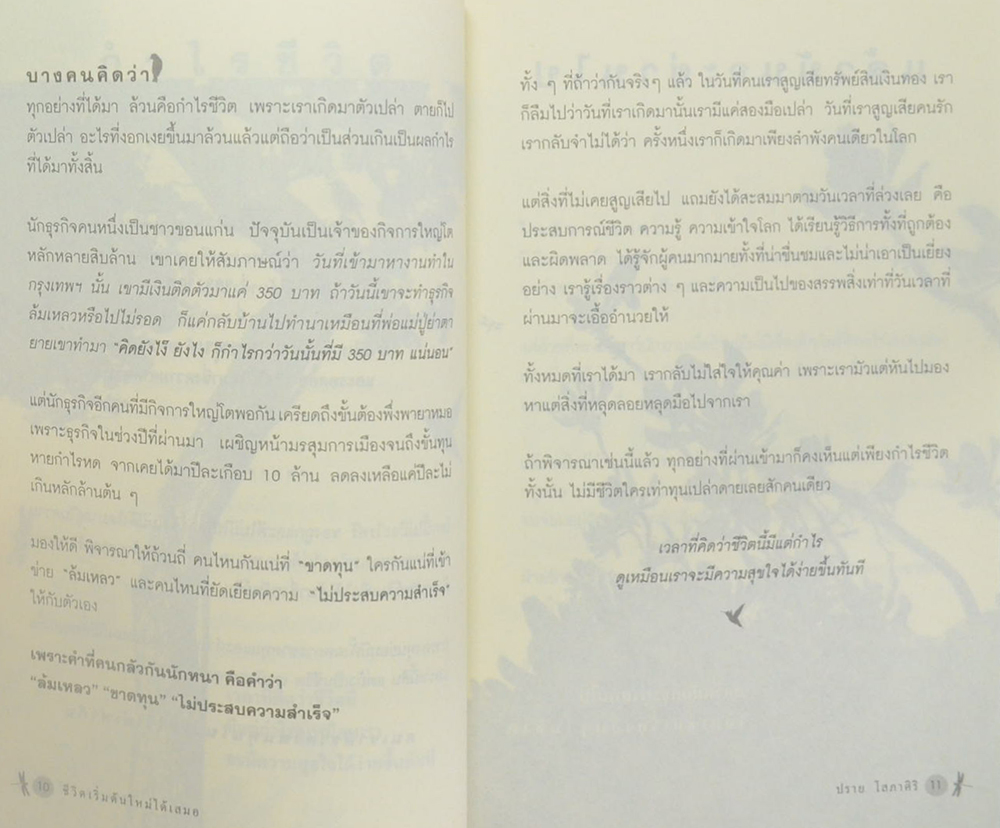 บางคนคิดว่า
ทุกอย่างที่ได้มา ล้วนคือกำไรชีวิต เพราะเราเกิดมาตัวเปล่า ตายก็ไป
ตัวเปล่า อะไรที่งอกเงยขึ้นมาล้วนแล้วแต่ถือว่าเป็นส่วนเกินเป็นผลกำไร
ที่ได้มาทั้งสิ้น
นักธุรกิจคนหนึ่งเป็นชาวขอนแก่น ปัจจุบันเป็นเจ้าของกิจการใหญ่โต
หลักหลายสิบล้าน เขาเคยให้สัมภาษณ์ว่า วันที่เข้ามาหางานทำใน
กรุงเทพฯ นั้น เขามีเงินติดตัวมาแค่ 350 บาท ถ้าวันนี้เขาจะทำธุรกิจ
ล้มเหลวหรือไปไม่รอด ก็แค่กลับบ้านไปทำนาเหมือนที่พ่อแม่ปู่ย่าตา
ยายเขาทำมา "คิดยังไง๊ ยังไง ก็กำไรกว่าวันนั้นที่มี 350 บาท แน่นอน"
แต่นักธุรกิจอีกคนที่มีกิจการใหญ่โตพอกัน เครียดถึงขั้นต้องพึ่งพายาหมอ
เพราะธุรกิจในช่วงปีที่ผ่านมา เผชิญหน้ามรสุมการเมืองจนถึงขั้นทุน
หายกำไรหด จากเคยได้มาปีละเกือบ 10 ล้าน ลดลงเหลือแค่ปีละไม่
เกินหลักล้านต้น ๆ
มองให้ดี พิจารณาให้ถ้วนถี่ คนไหนกันแน่ที่ "ขาดทุน" ใครกันแน่ที่เข้า
ข่าย "ล้มเหลว" และคนไหนที่ยัดเยียดความ "ไม่ประสบความสำเร็จ"
ให้กับตัวเอง
เพราะคำที่คนกลัวกันนักหนา คือคำว่า
"ล้มเหลว" "ขาดทุน" "ไม่ประสบความสำเร็จ"
10 ชีวิตเริ่มต้นใหม่ได้เสมอ
ทั้ง ๆ ที่ถ้าว่ากันจริงๆ แล้ว ในวันที่คนเราสูญเสียทรัพย์สินเงินทอง เรา
ก็ลืมไปว่าวันที่เราเกิดมานั้นเรามีแค่สองมือเปล่า วันที่เราสูญเสียคนรัก
เรากลับจำไม่ได้ว่า ครั้งหนึ่งเราก็เกิดมาเพียงลำพังคนเดียวในโลก
แต่สิ่งที่ไม่เคยสูญเสียไป แถมยังได้สะสมมาตามวันเวลาที่ล่วงเลย คือ
ประสบการณ์ชีวิต ความรู้ ความเข้าใจโลก ได้เรียนรู้วิธีการทั้งที่ถูกต้อง
และผิดพลาด ได้รู้จักผู้คนมากมายทั้งที่น่าชื่นชมและไม่น่าเอาเป็นเยี่ยง
อย่าง เรารู้เรื่องราวต่าง ๆ และความเป็นไปของสรรพสิ่งเท่าที่วันเวลาที่
ผ่านมาจะเอื้ออำนวยให้
ทั้งหมดที่เราได้มา เรากลับไม่ใส่ใจให้คุณค่า เพราะเรามัวแต่หันไปมอง
หาแต่สิ่งที่หลุดลอยหลุดมือไปจากเรา
ถ้าพิจารณาเช่นนี้แล้ว ทุกอย่างที่ผ่านเข้ามาก็คงเห็นแต่เพียงกำไรชีวิต
ทั้งนั้น ไม่มีชีวิตใครเท่าทุนเปล่าดายเลยสักคนเดียว
เวลาที่คิดว่าชีวิตนี้มีแต่กำไร
ดูเหมือนเราจะมีความสุขใจได้ง่ายขึ้นทันที
ปราย โสภาศิริ 11